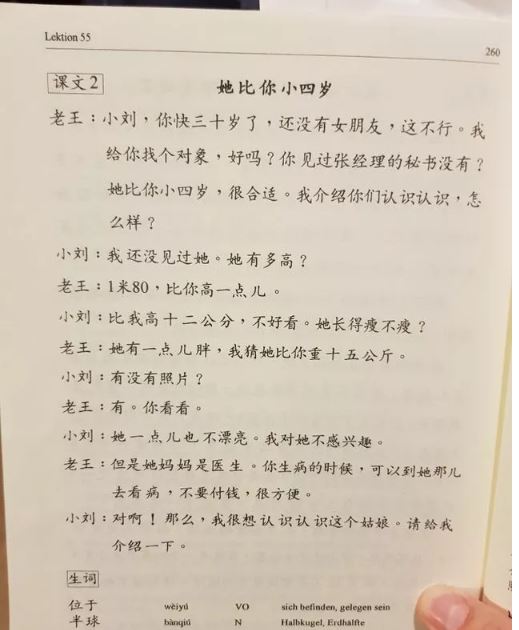 Lektion 55
260
课文2
她比你小四岁
老王：小刘，你快三十岁了，还没有女朋友，这不行。我
给你找个对象，好吗？你见过张经理的秘书没有？
她比你小四岁，很合适。我介绍你们认识认识，怎
么样？
小刘：我还没见过她。她有多高？
老王：1米80，比你高一点儿。
小刘：比我高十二公分，不好看。她长得瘦不瘦？
老王：她有一点儿胖，我猜她比你重十五公斤。
小刘：有没有照片？
老王：有。你看看。
小刘：她一点儿也不漂亮。我对她不感兴趣。
老王：但是她妈妈是医生。你生病的时候，可以到她那儿
去看病，不要付钱，很方便。
小刘：对啊！那么，我很想认识认识这个姑娘。请给我
介绍一下。
生词
位于 wèiyú VO sich befinden, gelegen sein
半球 bànqiú N Halbkugel, Erdhälfte